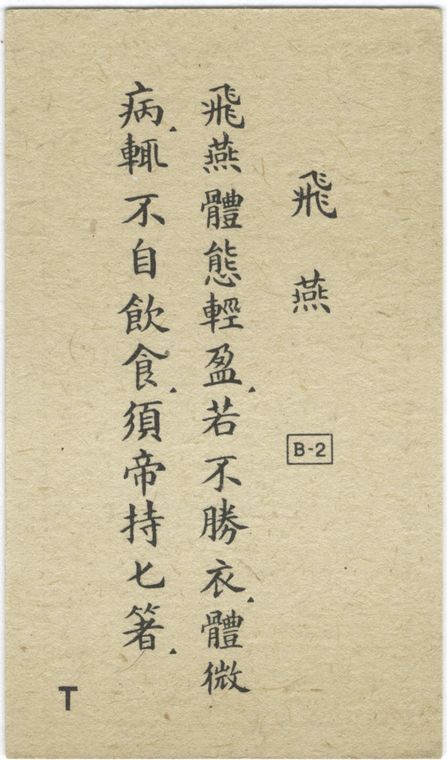 飛燕
B-2
飛燕體態輕盈、若不勝衣、體微
病、輒不自飲食、須帝持匕箸、
T